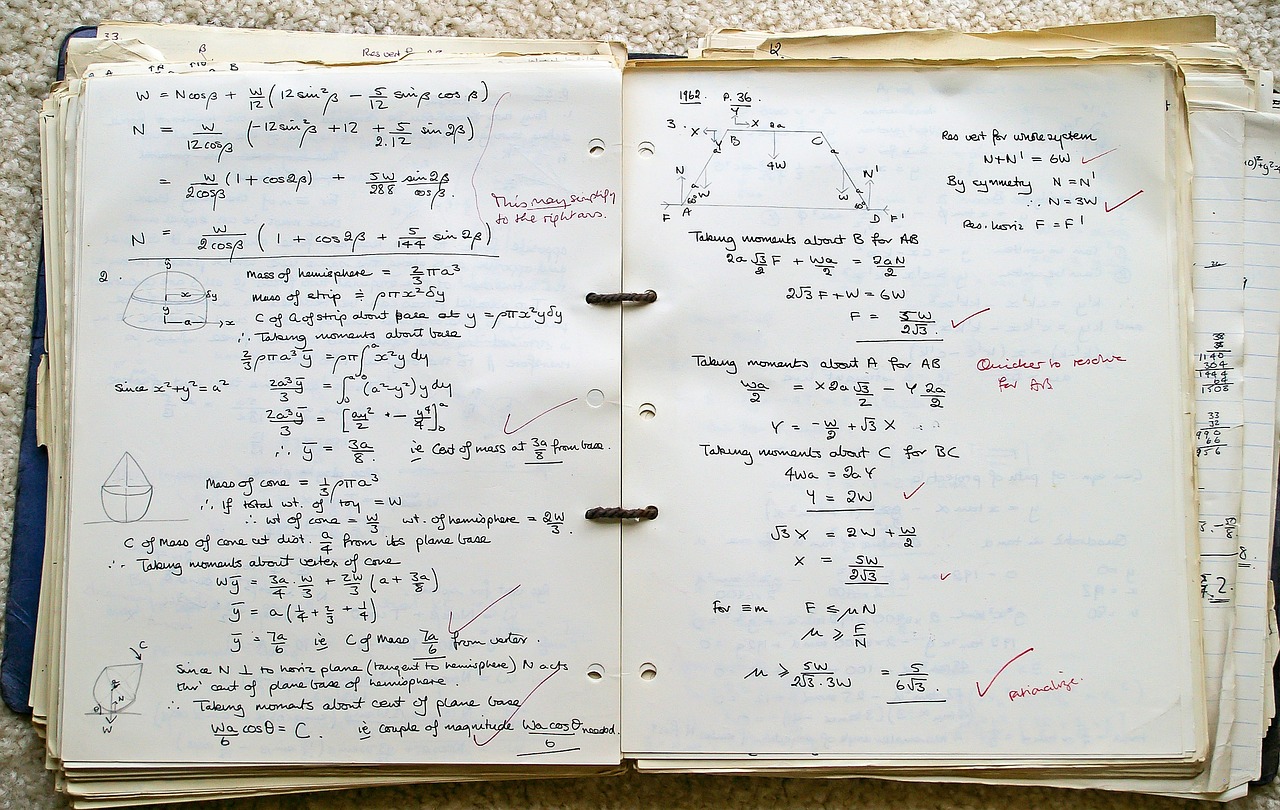 33.
β
Res vert
A B
W = N cos β + W/12 (12 sin²β − 5/12 sin β cos β)
N = W/12cosβ (−12 sin²β + 12 + 5/2.12 sin 2β)
= W/2cosβ (1 + cos 2β) + 5W/288 sin 2β/cos β.
This may simplify
to the right ans.
N = W/2cosβ (1 + cos 2β + 5/144 sin 2β)
2.
y
x δy
y
a x
Mass of hemisphere = 2/3 π a³
Mass of strip ≑ ρπx²δy
C of G of strip about base at y = ρπx²yδy
∴ Taking moments about base
2/3 ρπa³ȳ = ρπ∫₀ᵃ x²y dy
Since x²+y²=a² 2a³ȳ/3 = ∫₀ᵃ (a²−y²)y dy
2a³ȳ/3 = [ay²/2 − y⁴/4]₀ᵃ
∴ ȳ = 3a/8 ie Cent of mass at 3a/8 from base.
Mass of cone = 1/3 ρπa³
∴ If total wt. of toy = W
∴ wt of cone = W/3 wt. of hemisphere = 2W/3.
C of Mass of cone at dist. a/4 from its plane base
∴ Taking moments about vertex of cone
Wȳ = 3a/4 . W/3 + 2W/3 (a + 3a/8)
ȳ = a(1/4 + 2/3 + 1/4)
ȳ = 7a/6 ie C of Mass 7a/6 from vertex.
C
N
θ
W
Since N ⊥ to horiz plane (tangent to hemisphere) N acts
thro' cent of plane base of hemisphere.
∴ Taking moments about cent of plane base
Wa/6 cosθ = C. ie couple of magnitude Wa cosθ/6 needed.
62.
1962. P. 36.
3.
Y
X X 2a
B C
Y a a
4W
N a a N'
W W
60° 60°
F A D F'
Res vert for whole system
N+N' = 6W
By symmetry N = N'
∴ N = 3W
Res. horiz F = F'
Taking moments about B for AB
2a √3/2 F + Wa/2 = 2aN/2
2√3 F + W = 6W
F = 5W/2√3.
Taking moments about A for AB
Quicker to resolve
for AB
Wa/2 = X 2a √3/2 − Y 2a/2
Y = −W/2 + √3 X
Taking moments about C for BC
4Wa = 2aY
Y = 2W
√3 X = 2W + W/2
X = 5W/2√3
For ≡m F ≤ μN
μ ≥ F/N
μ ≥ 5W/2√3.3W = 5/6√3.
rationalize.
38
38
1140
304
1444
64
1508
33
32
990
66
956